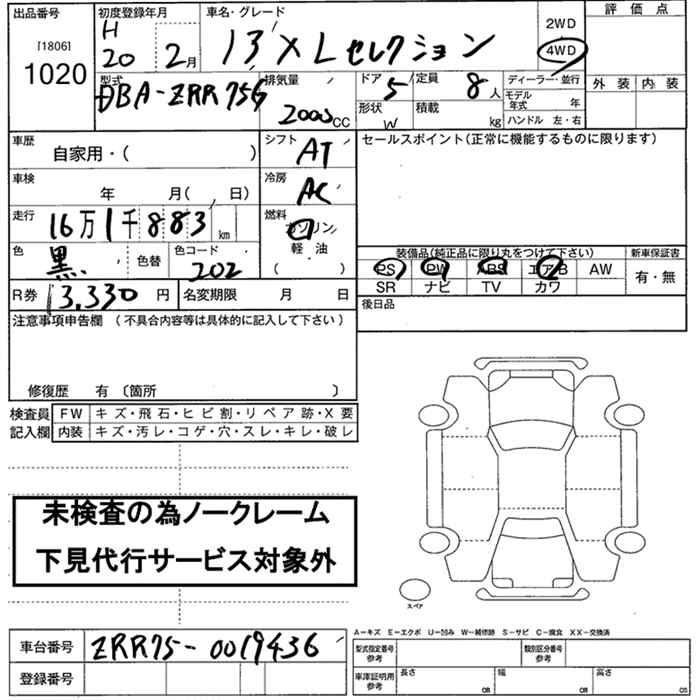 出品番号
[1806]
1020
初度登録年月
H
20 2月
車名・グレード
X Lセレクション
2WD
4WD
評価点
外装 内装
型式
DBA-ZRR75G
排気量
2000CC
ドア 5
定員 8人
形状 W
積載 kg
ディーラー・並行
モデル年式 年
ハンドル 左・右
車歴
自家用・( )
シフト AT
セールスポイント(正常に機能するものに限ります)
車検
年 月( 、 日)
冷房 AC
走行
16万1千883km
燃料
ガソリン
軽油
( )
色 黒
色替
色コード 202
装備品(純正品に限り丸をつけて下さい)
新車保証書
PS PW ABS エアB AW
SR ナビ TV カワ
有・無
R券 13,330円
名変期限 月 日
後日品
注意事項申告欄(不具合内容等は具体的に記入して下さい)
修復歴 有〔箇所 〕
検査員記入欄
FW キズ・飛石・ヒビ割・リペア跡・X要
内装 キズ・汚レ・コゲ・穴・スレ・キレ・破レ
未検査の為ノークレーム
下見代行サービス対象外
スペア
車台番号 ZRR75-0019436
登録番号
A-キズ E-エクボ U-凹み W-補修跡 S-サビ C-腐食 XX-交換済
型式指定番号
参考
類別区分番号
参考
車庫証明用
参考
長さ cm
幅 cm
高さ cm